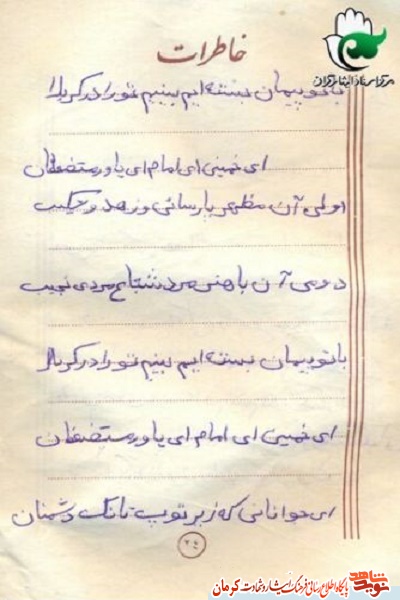 خاطرات
مرکز اسناد ایثارگران
با تو پیمان بسته ایم بینیم تو را در کربلا
ای خمینی ای امام ای یاور مستضعفان
اولی آن مظهر پارسائی و زهد و شکیب
دومی آن باهنر مرد شجاع مردی نجیب
با تو پیمان بسته ایم بینیم تو را در کربلا
ای خمینی ای امام ای یاور مستضعفان
ای جوانانی که زیر توپ تانک دشمنان
۲۴
نوید شاهد
پایگاه اطلاع رسانی فرهنگ ایثار و شهادت کرمان